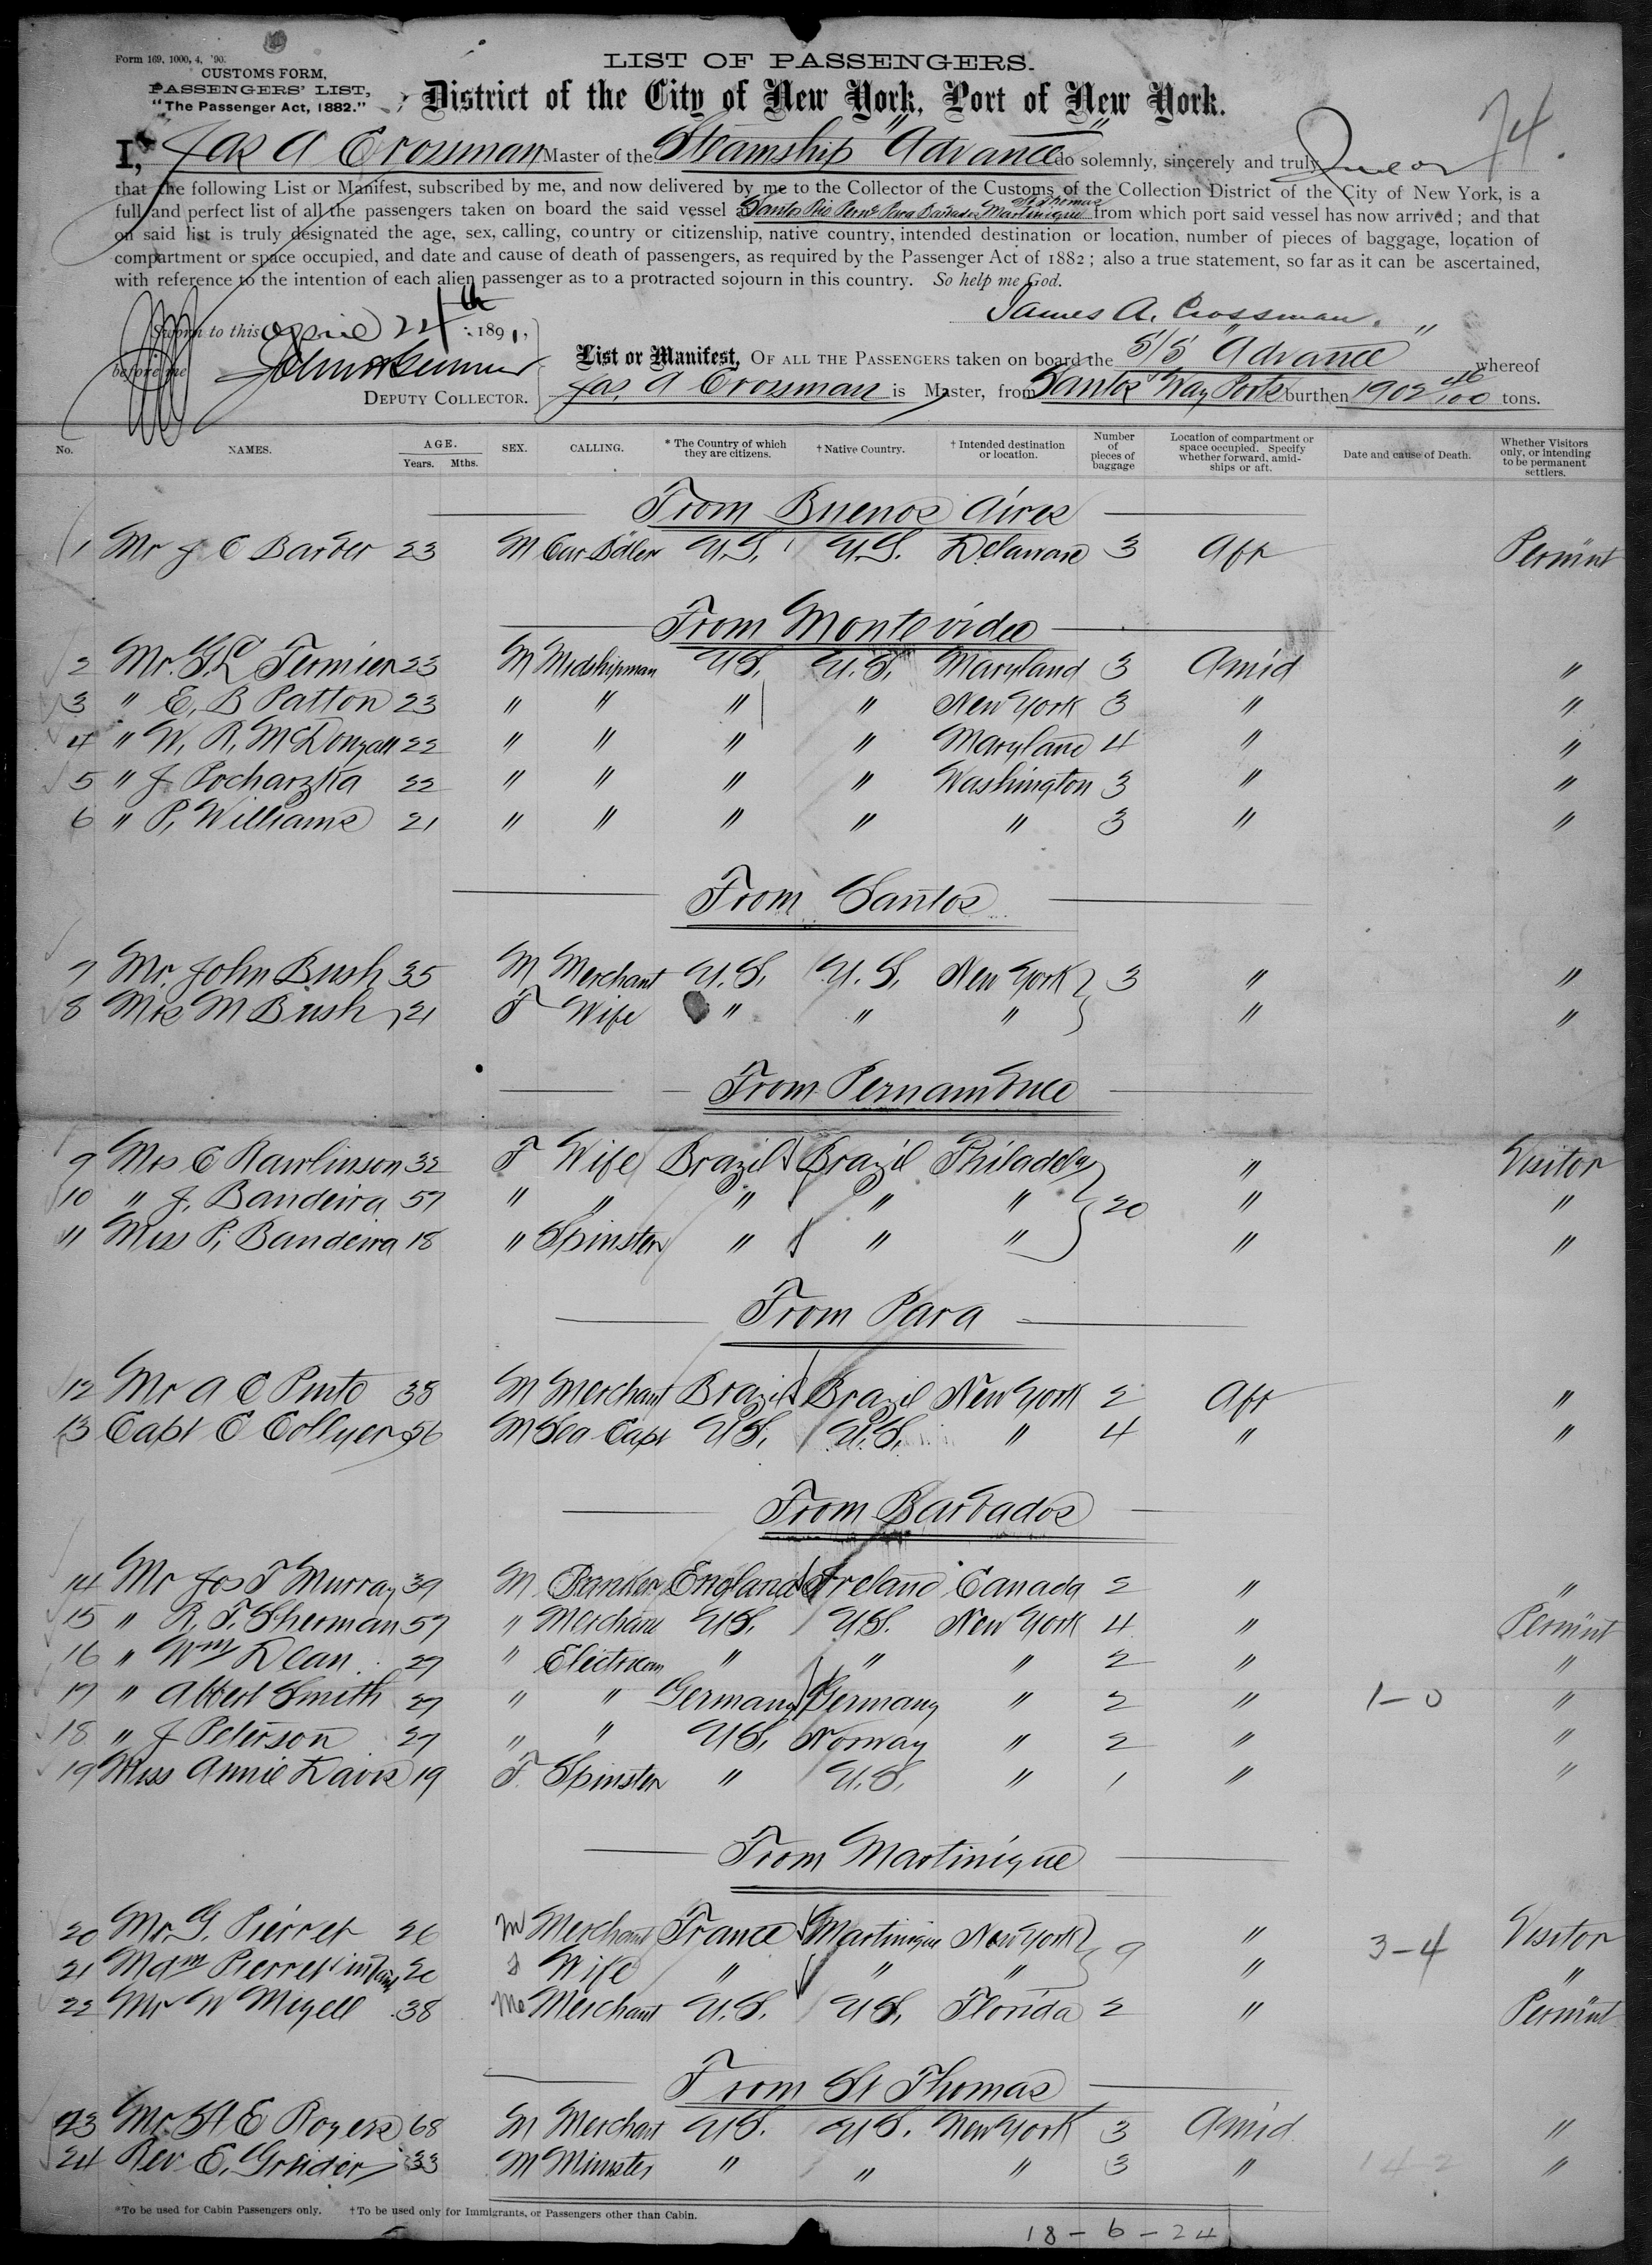 Form 169, 1000, 4, '90.
LIST OF PASSENGERS.
CUSTOMS FORM,
PASSENGERS' LIST,
"The Passenger Act, 1882."
District of the City of New York, Port of New York.
74.
I, Jas A Crossman Master of the Steamship "Advance" do solemnly, sincerely and truly Swear
that the following List or Manifest, subscribed by me, and now delivered by me to the Collector of the Customs of the Collection District of the City of New York, is a
full and perfect list of all the passengers taken on board the said vessel Santos Rio Pernc Para Barbados Martinique St Thomas from which port said vessel has now arrived; and that
on said list is truly designated the age, sex, calling, country or citizenship, native country, intended destination or location, number of pieces of baggage, location of
compartment or space occupied, and date and cause of death of passengers, as required by the Passenger Act of 1882; also a true statement, so far as it can be ascertained,
with reference to the intention of each alien passenger as to a protracted sojourn in this country. So help me God.
James A. Crossman.
Sworn to this April 24th 1891,
before me
DEPUTY COLLECTOR.
List or Manifest, OF ALL THE PASSENGERS taken on board the S/S "Advance" whereof
Jas. A Crossman is Master, from Santos Way Ports burthen 1902 46/100 tons.
No. NAMES. AGE. Years. Mths. SEX. CALLING. * The Country of which they are citizens. † Native Country. † Intended destination or location. Number of pieces of baggage Location of compartment or space occupied. Specify whether forward, amidships or aft. Date and cause of Death. Whether Visitors only, or intending to be permanent settlers.
From Buenos Aires
1 Mr J C Barber 23 M U.S. U.S. Delaware 3 Aft Perm'nt
From Montevideo
2 Mr. F.L Termier 23 M Midshipman U.S. U.S. Maryland 3 Amid "
3 " E. B Patton 23 " " " " New York 3 " "
4 " W. R. McDongall 22 " " " " Maryland 4 " "
5 " J Pocharzka 22 " " " " Washington 3 " "
6 " P. Williams 21 " " " " " 3 " "
From Santos
7 Mr. John Bush 35 M Merchant U.S. U.S. New York 3 " "
8 Mrs M Bush 21 F Wife " " " " "
From Pernambuco
9 Mrs C Rawlinson 32 F Wife Brazil Brazil Philadela " Visitor
10 " J. Bandeira 57 " " " " " 20 " "
11 Miss P. Bandeira 18 " Spinster " " " " "
From Para
12 Mr A C Pinto 38 M Merchant Brazil Brazil New York 2 Aft "
13 Capt C Collyer 56 M Sea Capt U.S. U.S. " 4 " "
From Barbados
14 Mr Jos T Murray 39 M Banker England Ireland Canada 2 " "
15 " R. T. Sherman 57 " Merchant U.S. U.S. New York 4 " Perm'nt
16 " Wm Dean 27 " Electrican " " " 2 " "
17 " Albert Smith 27 " " Germany Germany " 2 " 1-0 "
18 " J Peterson 27 " " U.S. Norway " 2 " "
19 Miss Annie Davis 19 F. Spinster " U.S. " 1 " "
From Martinique
20 Mr G. Pierret 26 M Merchant France Martinique New York 9 " 3-4 Visitor
21 Mdm Pierret infant 20 f Wife " " " " "
22 Mr W Mizell 38 M Merchant U.S. U.S. Florida 2 " Perm'nt
From St Thomas
23 Mr. H E Rogers 68 M Merchant U.S. U.S. New York 3 Amid "
24 Rev E. Grüder 33 M Minister " " " 3 " "
*To be used for Cabin Passengers only. †To be used only for Immigrants, or Passengers other than Cabin.
18-6-24